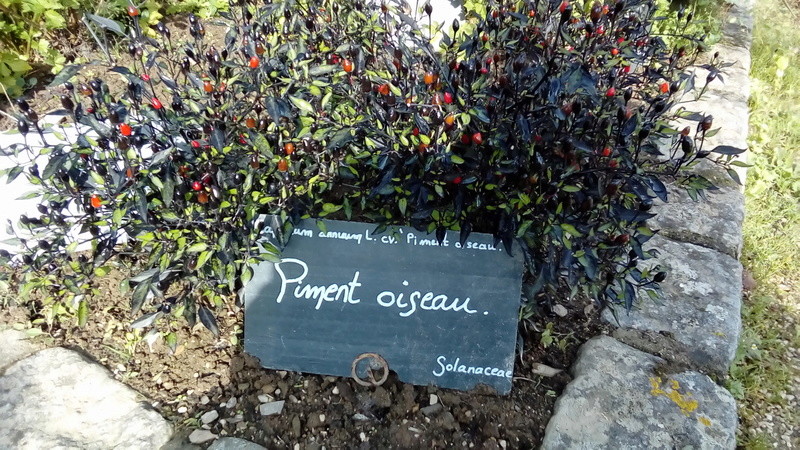 annuum L. cv. 'Piment oiseau.
Piment oiseau.
Solanaceae